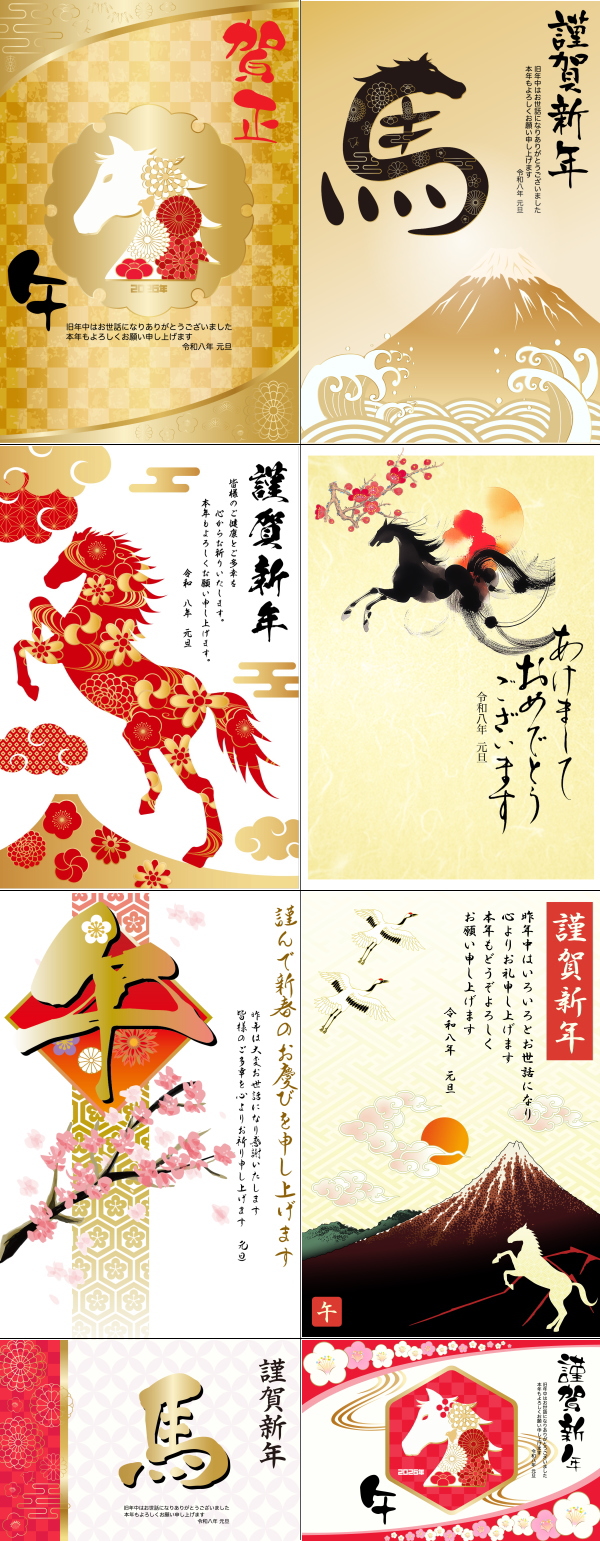 賀正
2026年
午
旧年中はお世話になりありがとうございました
本年もよろしくお願い申し上げます
令和八年 元旦
謹賀新年
旧年中はお世話になりありがとうございました
本年もよろしくお願い申し上げます
令和八年 元旦
馬
謹賀新年
皆様のご健康とご多幸を
心からお祈りいたします。
本年もよろしくお願い申し上げます。
令和 八年 元旦
あけまして
おめでとう
ございます
令和八年 元旦
午
謹んで新春のお慶びを申し上げます
昨年は大変お世話になり感謝いたします
皆様のご多幸を心よりお祈り申し上げます 元旦
謹賀新年
昨年中はいろいろとお世話になり
心よりお礼申し上げます
本年もどうぞよろしく
お願い申し上げます
令和八年 元旦
午
謹賀新年
馬
旧年中はお世話になりありがとうございました
本年もよろしくお願い申し上げます
令和八年 元旦
謹賀新年
旧年中はお世話になりありがとうございました
本年もよろしくお願い申し上げます
令和八年 元旦
2026年
午